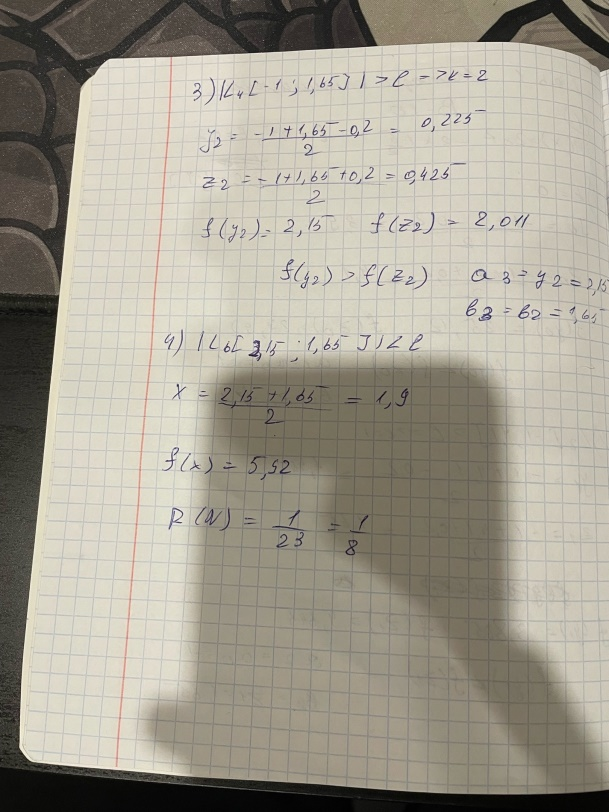 3) |L₄[-1 ; 1,65]| > l => k = 2
y₂ = \frac{-1+1,65-0,2}{2} = 0,225
z₂ = \frac{-1+1,65+0,2}{2} = 0,425
f(y₂) = 2,15 f(z₂) = 2,011
f(y₂) > f(z₂) a₃ = y₂ = 2,15
b₃ = b₂ = 1,65
4) |L₆[2,15 ; 1,65]| < l
x = \frac{2,15+1,65}{2} = 1,9
f(x) = 5,52
R(N) = \frac{1}{23} = \frac{1}{8}